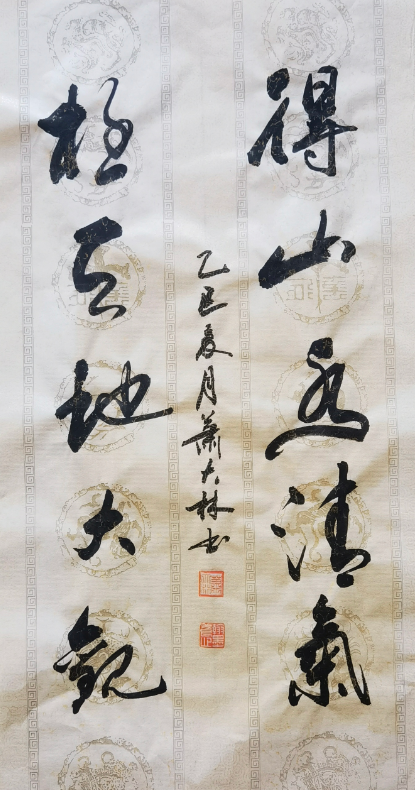 得山水清氣
極天地大觀
乙巳夏月蕭大林書